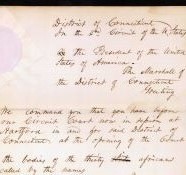 District of Connecticut
In the 2d Circuit of the U. States
The President of the United
States of America.
The Marshal of
the District of Connecticut
Greeting
We command you that you have before
our Circuit Court now in session at
Hartford in and for said District of
Connecticut at the opening of the Court
the bodies of the thirty african
called by the names